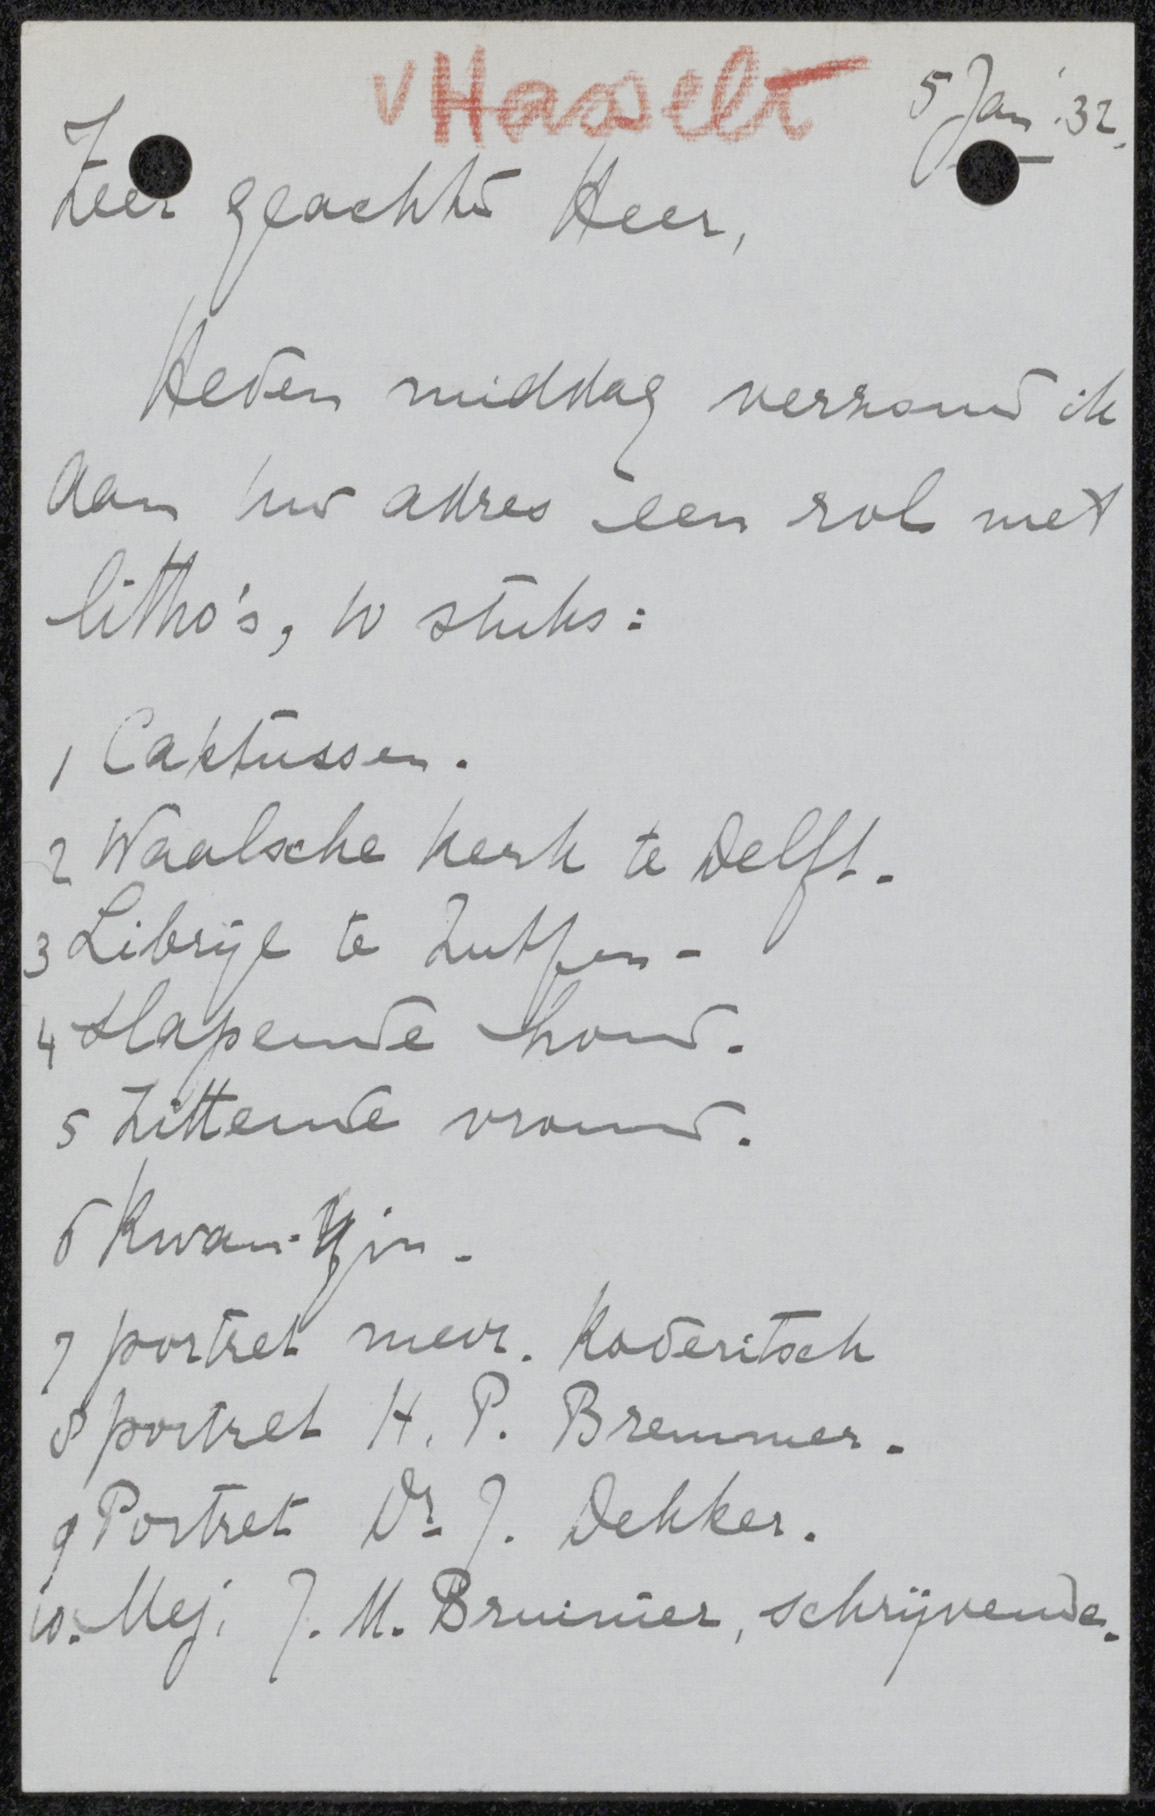 v Hasselt
5 Jan '32.
Zeer geachte Heer,
Heden middag verzond ik
aan uw adres een rol met
litho's, 10 stuks:
1 Caktussen.
2 Waalsche kerk te Delft.
3 Librije te Zutfen -
4 Slapende hond.
5 Zittende vrouw.
6 Kwan-Yin -
7 portret mevr. Koderitsch
8 portret H. P. Bremmer.
9 Portret Dr. J. Dekker.
10. Mej. J. M. Bruinier, schrijvende.